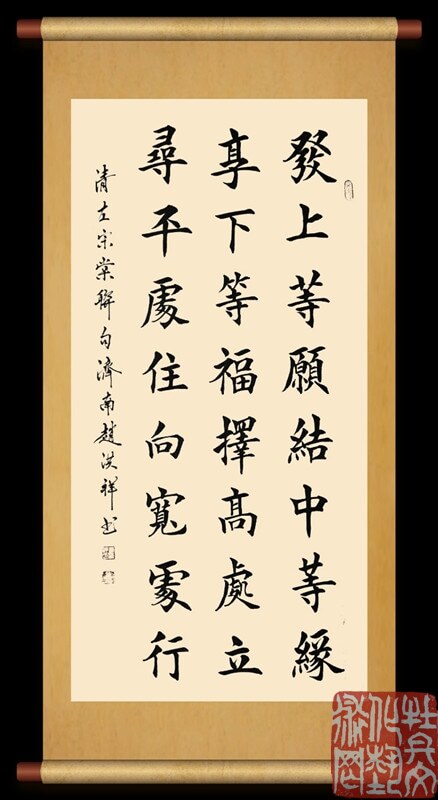 發上等願結中等緣
享下等福擇高處立
尋平處住向寬處行
清左宗棠聯句濟南趙洪祥书